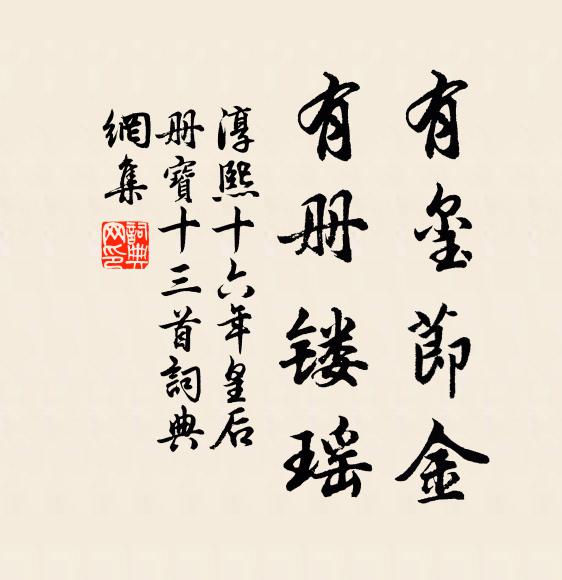 有玺節金
有册镂瑶
淳熙十六年皇后
册寶十三首詞典
網集
詞典网印